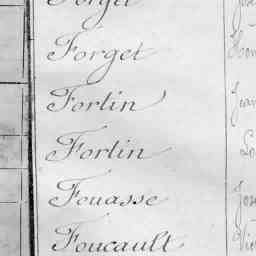 Forget
Forget
Fortin
Fortin
Fouasse
Foucault